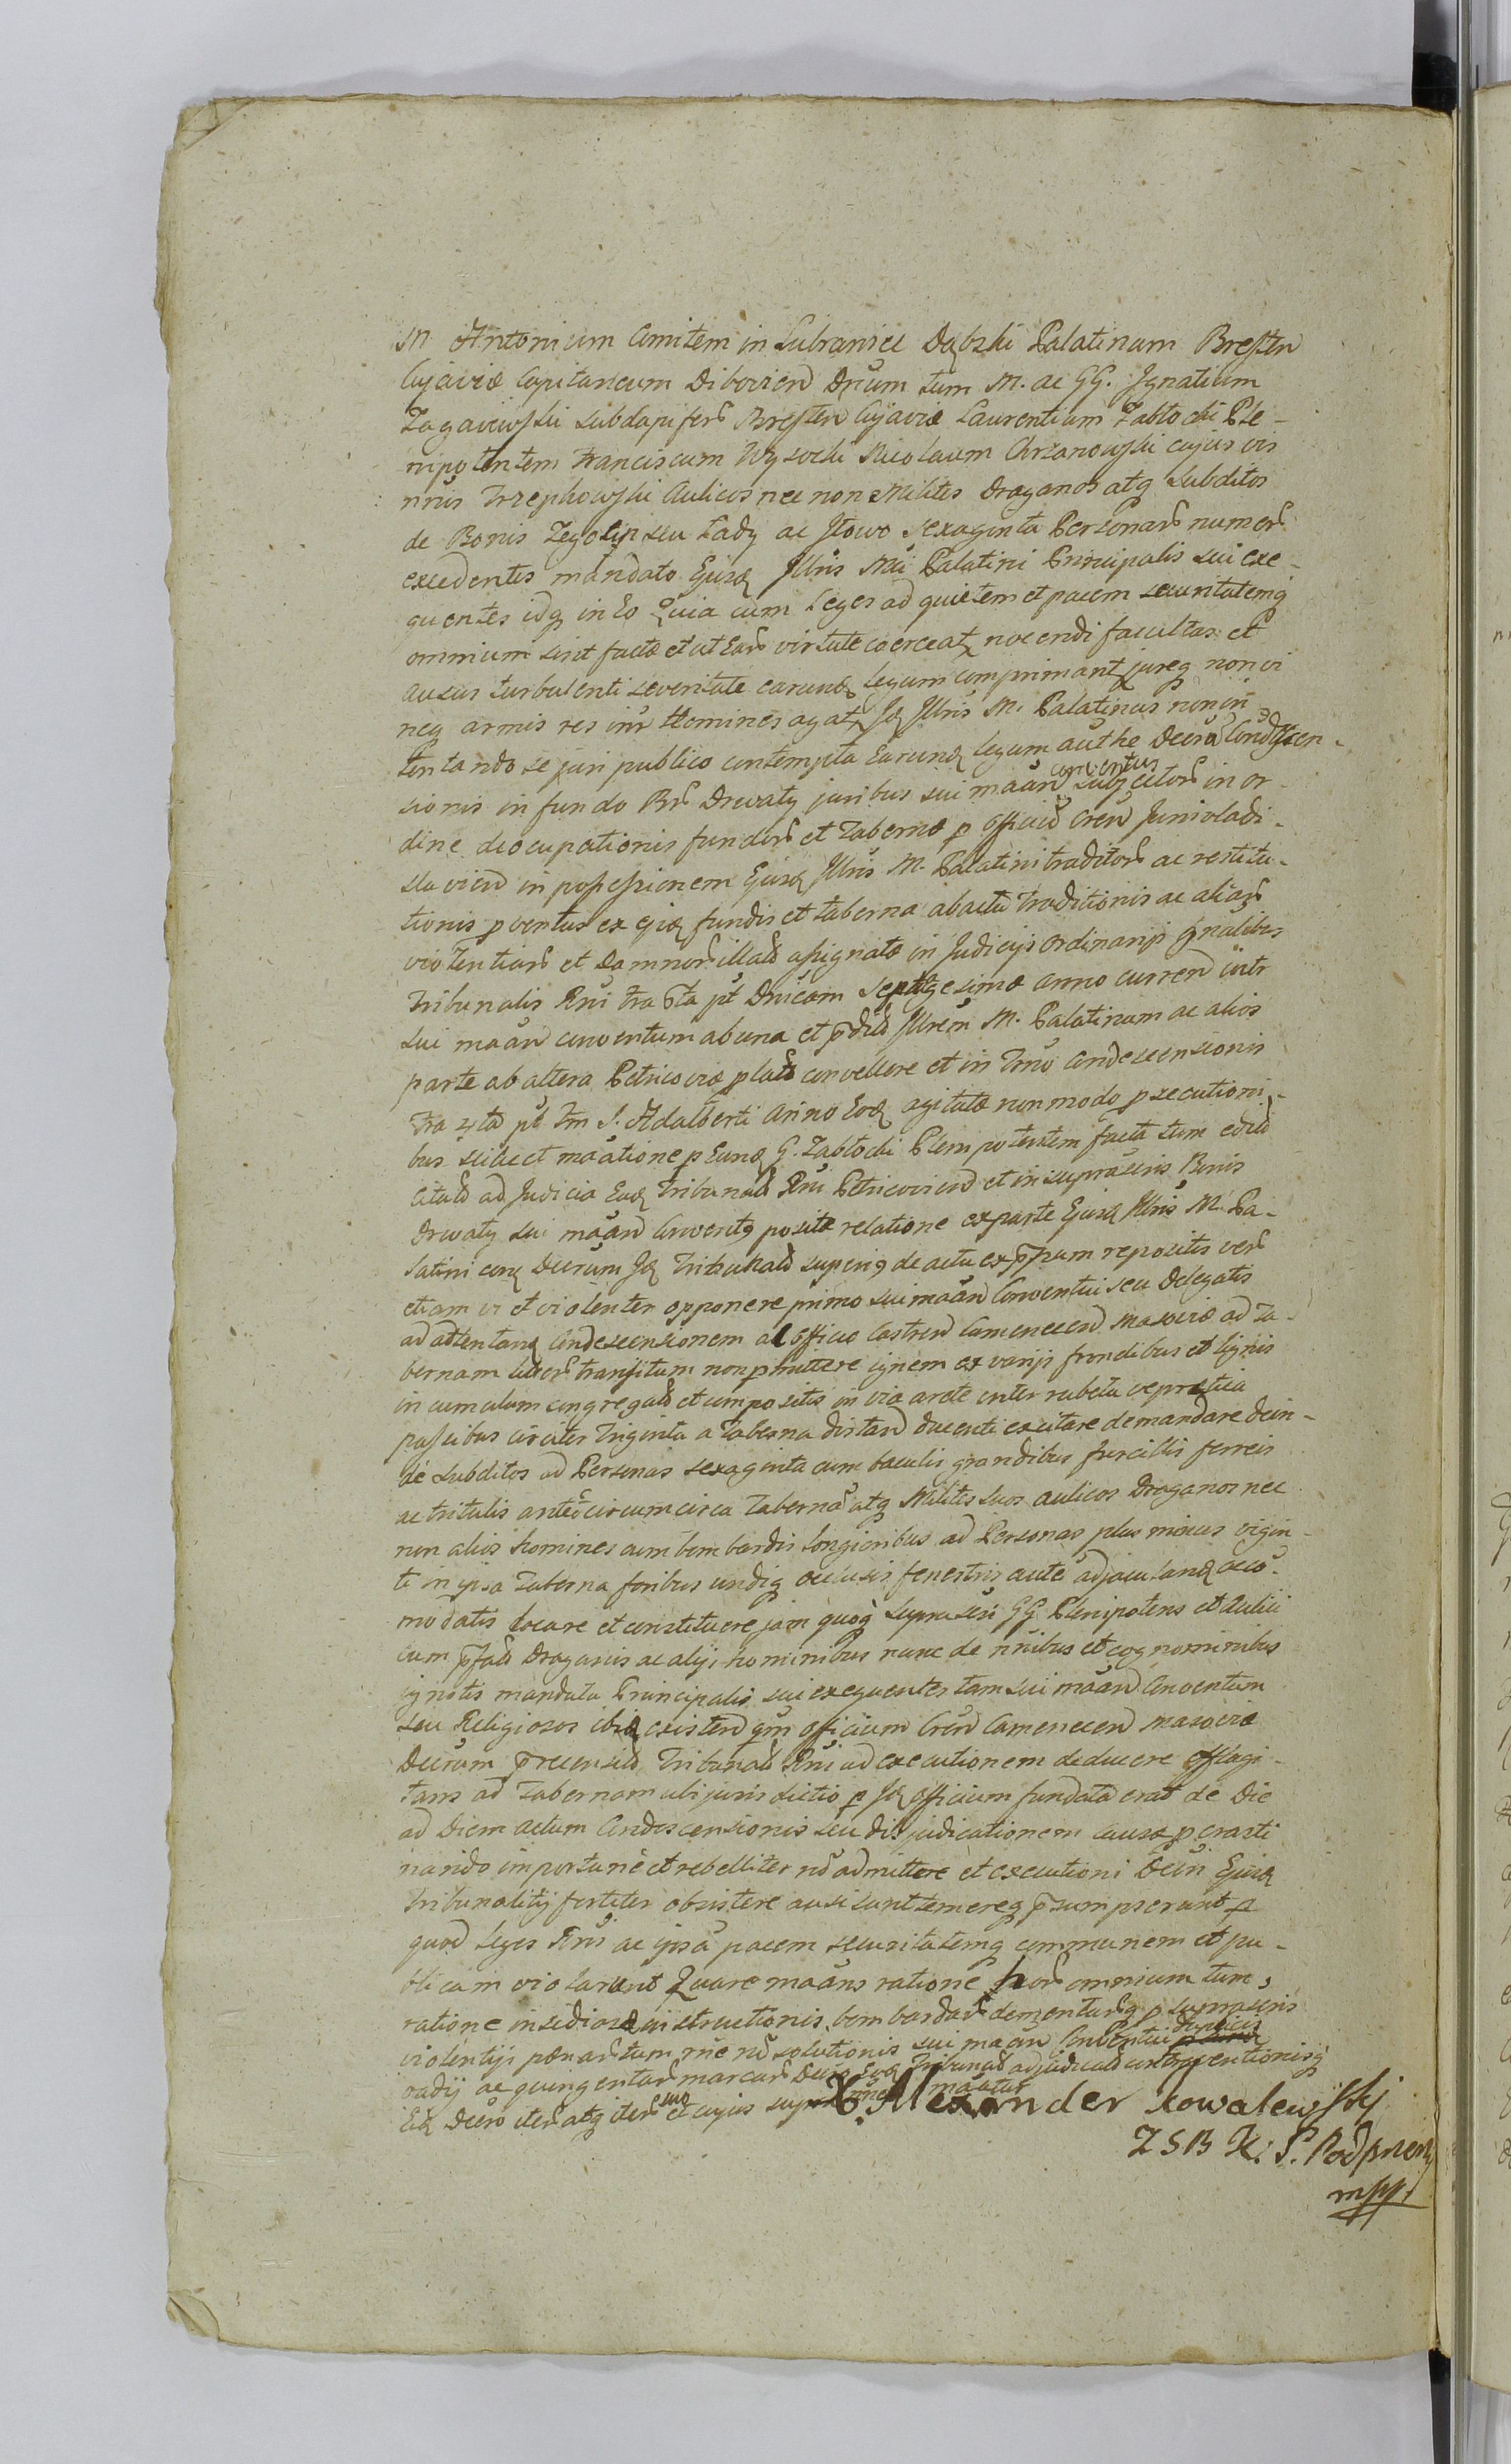 M Antonium Comitem in Lubraniec Dąbski Palatinum Bresten
Cujaviæ Capitaneum Dibovien Dnum tum M. ac GG. Ignatium
Zagaiewski Subdapiferũ Bresten Cujaviæ Laurentium Zabłocki Ple-
nipotentem Franciscum Wysocki Nicolaum Chrzanowski cujus vis
nnis Trzepkowski Aulicos nec non Milites Draganos atq Subditos
de Bonis Zegotki seu Łady ac Jłowo Sexaginta Personarũ numerũ
excedentes mandato Ejusq Jllris Mci Palatini Principalis sui exe-
quentes idq in Eo Quia cum Leges ad quietem et pacem securitatemq
omnium sint factæ et ut Earũ virtute coerceatʒ nocendi facultas et
ausus turbulenti severitate earunq legum comprimantʒ jureq non vi
neq armis res intr Homines agatʒ Jq Jllris M. Palatinus non in
tentando se juri publico contempta Earunq legum authe Decrũ Condescen-
sionis in fundo Brũ Drwały juribus sui maãn conventus subjectorũ in or-
dine deocupationis fundorũ et Tabernæ p officiũ Cren Juniwladi-
slavien in possessionem Ejusq Jllris M. Palatini traditorũ ac restitu-
tionis pventus ex ejsq fundis et taberna ab actu Traditionis ac aliarũ
violentiarũ et Damnorũ illatũ assignatæ in Judicijs Ordinarijs Gnalibus
Tribunalis Rni fra 6ta pt Dnicam Septuagesimæ anno curren intr
sui maãn conventum ab una et p̃dictũ Jllrem M. Palatinum ac alios
parte ab altera Petricoviæ platũ convellere et in Trno Condescensionis
fra 4ta pt fm S. Adalberti Anno Eoq agitatæ non modo psecutioni-
bus scilicet maatione p Eunq G. Zabłocki Plenipotentem facta tum edictũ
citatũ ad Judicia Eaq Tribunalũ Rni Petricovien et in suprascris Bonis
Drwały sui maãn Conventʒ posita relatione ex parte Ejusq Jllris M. Pa-
latini conq Decrum Jq Tribunalũ superiʒ de actu expressum repositis verũ
etiam vi et violenter opponere primo sui maãn Conventui seu Delegatis
ad attentanq Condescensionem ac Officio Castren Camenecen Masoviæ ad Ta-
bernam liberũ transitum non pmittere ignem ex varijs frondibus et lignis
in cumulum congregatũ et compositis in via arcte inter rubeta vepretua
passibus circiter Triginta a Taberna distan ducenti excitare demandare dein-
de Subditos ad Personas sexaginta cum baculis grandibus furcillis ferreis
ac tritulis ante circumcirca Tabernã atq Milites suos aulicos Draganos nec
non alios homines cum bombardis longioribus ad Personas plus minus vigin-
ti in ipsa Taberna foribus undiq occlusis fenestris caute ad jaculanq acco-
modatis locare et constituere jam quoq suprascri GG Plenipotens et Aulici
cum p̃fatũ Draganis ac alijs hominibus nunc de nnibus et cognominibus
ignotis mandata Principalis sui exequentes tam sui maãn Conventum
seu Religiosos ibiq existen qm officium Cren Camenecen Masoviæ
Decrum p̃recensitũ Tribunalũ Rni ad executionem deducere efflagi-
tans ad Tabernam ubi juris dictio p Jq officium fundata erat de Die
ad Diem actum Condescensionis seu disjudicationem causæ pcrasti
nando importune et rebelliter nõ admittere et executioni Decri Ejusq
Tribunalitij fortiter obsistere ausi sunt temereq p̃sumpserunt p
quod Leges Rni ac ipsã pacem securitatemq communem et pu-
blicam violarunt Quare maãns ratione horũ omnium tum,
ratione insidiosæ instructionis bombardarũ dementarũq p suprascris
violentijs pænarũ tum rne nõ solutionis sui maãn Conventui duplicis
vadij ac quingentarũ marcarũ Decro Eoq Tribunalũ adjudicatũ contraventionisq
Eiq Decro iterũ atq iterũ suæ et cujus supr rne maatur
X. Alexander Kowalewskj
Z S B K. P. Podprzeor
mpp.